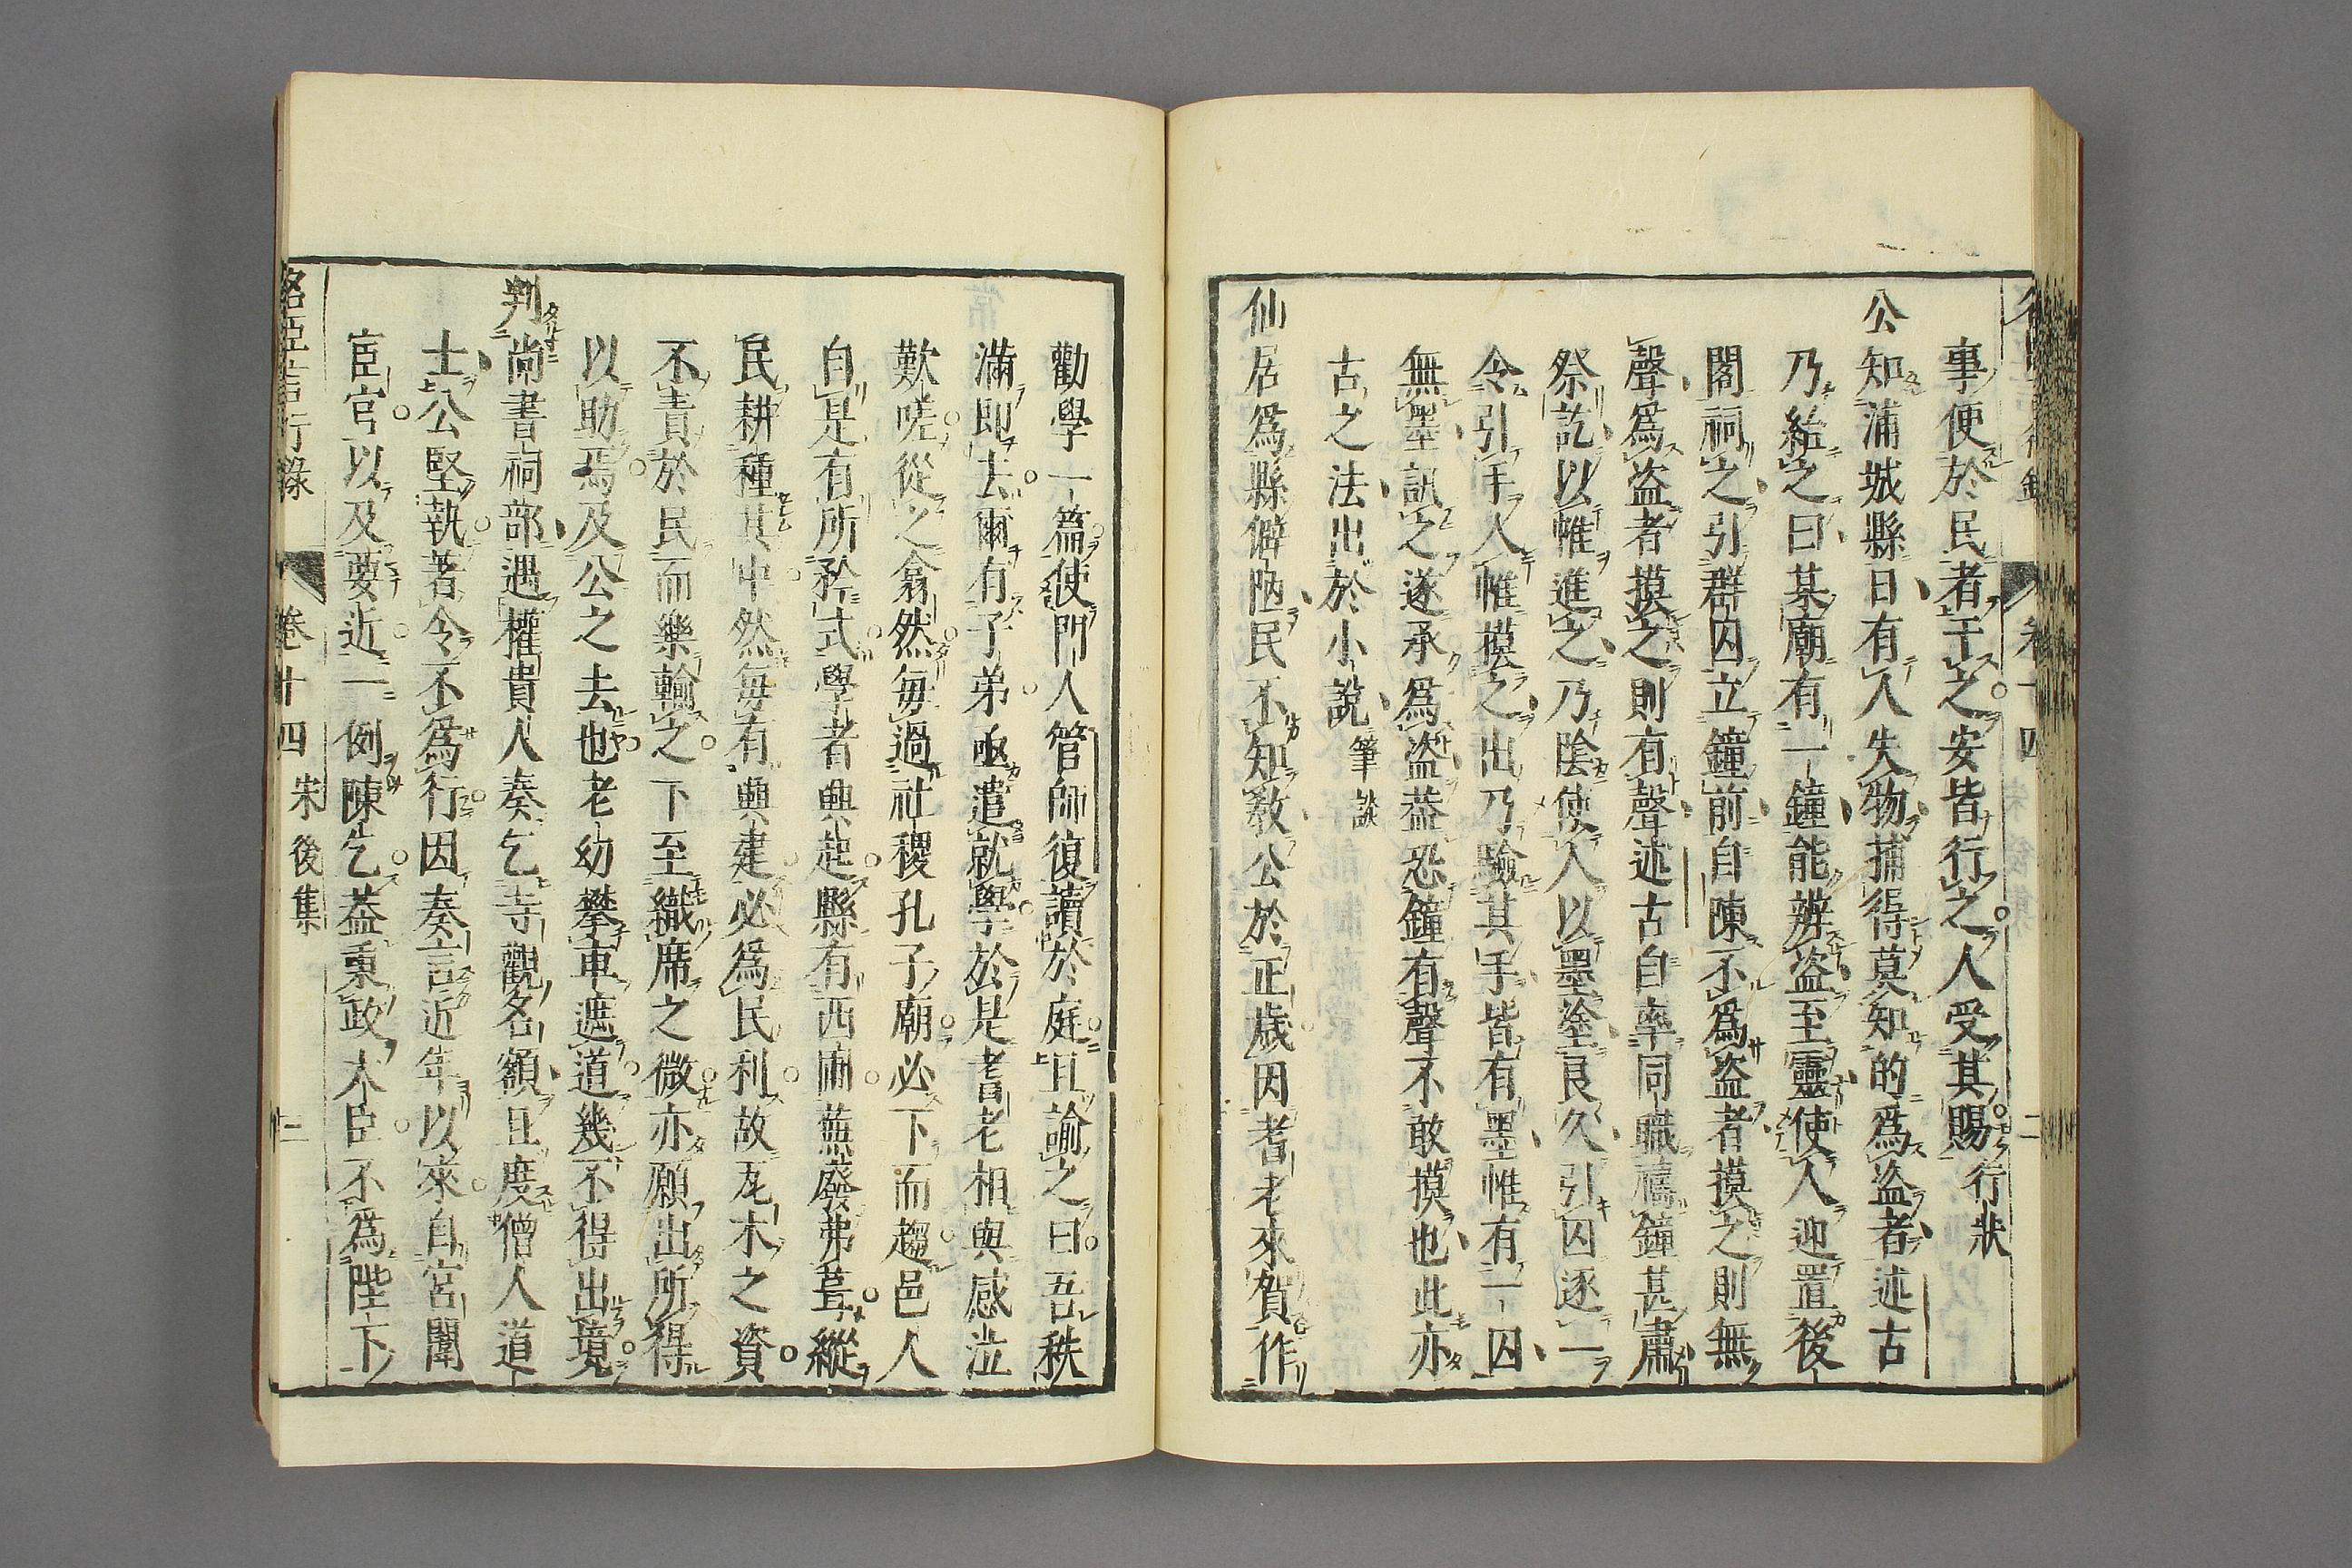 事便於民者于之安皆行之人受其賜行狀
公知浦城縣日有人失物捕得莫知的爲盗者述古
乃紿之曰某廟有一鐘能辨盗至靈使人迎置後
閣祠之引群囚立鐘前自陳不爲盗者摸之則無
聲爲盗者摸之則有聲述古自率同職禱鐘甚肅
祭訖以帷進之乃陰使人以墨塗良久引囚逐一
令引手入帷摸之出乃驗其手皆有墨惟有一囚
無墨訊之遂承爲盗葢恐鐘有聲不敢摸也此亦
古之法出於小說筆談
仙居爲縣僻陋民不知教公於正歲因耆老來賀作
勸學一篇使門人管師復讀於庭且諭之曰吾秩
滿即去爾有子弟亟遣就學於是耆老相與感泣
歎嗟從之翕然每過社稷孔子廟必下而趨邑人
自是有所矜式學者興起縣有西𤰞蕪廢弗葺縱
民耕種其中然每有興建必爲民利故瓦木之資
不責於民而樂輸之下至織席之微亦願出所得
以助焉及公之去也老幼攀車遮道幾不得出境
判尚書祠部遇權貴人奏乞寺觀名額且度僧人道
士公堅執著令不爲行因奏言近年以來自宮闈
宦官以及要近一例陳乞葢秉政大臣不爲陛下
名臣言行錄 卷十四 宋後集 三